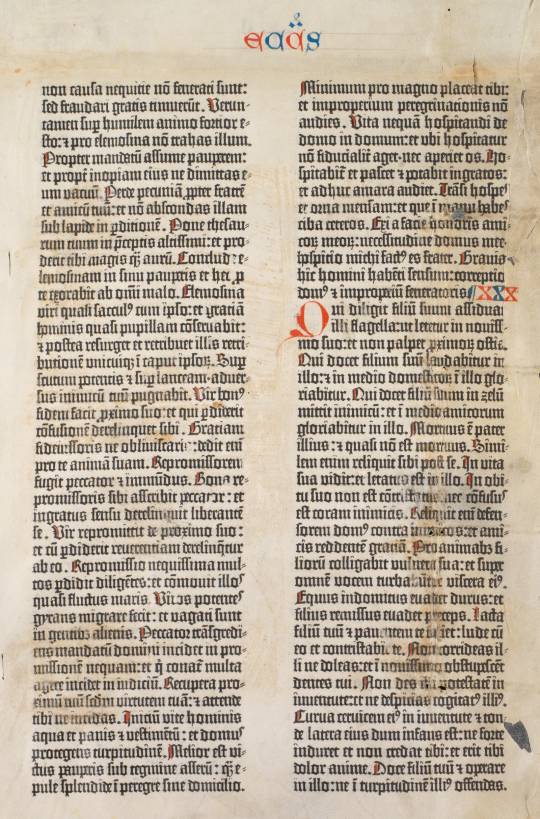 eccs
non causa nequitie nō fenerati sunt:
sed fraudari gratis timuerūt. Verun-
tamen sup̄ humilem animo fortior e-
sto: ⁊ pro elemosina nō trahas illum.
Propter mandatū assume pauperem:
et propt̄ inopiam eius ne dimittas e-
um vacuū. Perde pecuniā ꝓpter fratrē
et amicū tuū: et nō abscondas illam
sub lapide in ꝑditionē. Pone thesau-
rum tuum in p̄ceptis altissimi: et pro-
derit tibi magis qȝ aurū. Conclude e-
lemosinam in sinu pauperis et hec ꝓ
te exorabit ab om̄i malo. Elemosina
viri quasi saccul⁹ cum ipso: et graciā
hominis quasi pupillam cōseruabit:
⁊ postea resurget et retribuet illis retri-
butionē vnicuiqȝ ī caput ipsoꝝ. Super
scutum potentis ⁊ sup̄ lanceam aduer-
sus inimicū tuū pugnabit. Vir bon⁹
fidem facit ꝓximo suo: et qui ꝑdiderit
cōfusionē derelinquet sibi. Gratiam
fideiussoris ne obliuiscaris: dedit eni
pro te animā suam. Repromissorem
fugit peccator ⁊ inmūdus. Bona re-
promissoris sibi asscribit peccator: et
ingratus sensu derelinquit liberantē
se. Vir repromittit de proximo suo:
et cū ꝑdiderit reuerentiam derelinq̄tur
ab eo. Repromissio nequissima mul-
tos ꝑdidit diligētes: et cōmouit illos
quasi fluctus maris. Viros potentes
gyrans migrare fecit: et vagati sunt
in gentibus alienis. Peccator trāsgredi-
ens mandatū domini incidet in pro-
missionē nequam: et q̄ conat̄ multa
agere incidet in iudiciū. Recupera pro-
ximū tuū scdm̄ virtutem tuā: ⁊ attende
tibi ne incidas. Iniciū vite hominis
aqua et panis ⁊ vestimētū: et domus
protegens turpitudinē. Melior est vi-
ctus pauperis sub tegmine asserū: qȝ e-
pule splendide ī peregre sine domicilio.
Minimum pro magno placeat tibi:
et improperium peregrinacionis nō
audies. Vita nequā hospitandi de
domo in domum: et vbi hospitatur
nō fiducialit̄ aget: nec aperiet os. Ho-
spitabit̄ et pascet ⁊ potabit ingratos:
et ad huc amara audiet. Trāsi hospes
et orna mensam: et que ī manu habes
ciba ceteros. Exi a facie honoris ami-
coꝝ meoꝝ: necessitudine domus mee
hospicio michi factus es frater. Grauia
hec homini habēti sensum: correptio
domus ⁊ improperiū feneratoris. XXX
Qui diligit filiū suum assiduat
illi flagella: ut letetur in nouissi-
mo suo: et non palpet ꝓximoꝝ ostia.
Qui docet filium suū laudabitur in
illo: ⁊ in medio domesticoꝝ ī illo glo-
riabitur. Qui docet filiū suum in zelū
mittit inimicū: et ī medio amicorum
gloriabitur in illo. Mortuus ē pater
illius: ⁊ quasi nō est mortuus. Simi-
lem enim reliquit sibi post se. In vita
sua vidit: et letatus est in illo. In obi-
tu suo non est cōtristatus: nec cōfusus
est coram inimicis. Reliquit eni defen-
sorem domus contra inimicos: et ami-
cis reddentē graciā. Pro animabȝ fi-
liorū colligabit vulnera sua: et super
omnē vocem turbabūtur viscera eius.
Equus indomitus euadet durus: et
filius remissus euadet p̄ceps. Lacta
filiū tuū ⁊ pauentem te faciet: lude cū
eo et contristabit te. Non corrideas il-
li ne doleas: et ī nouissimo obstupescēt
dentes tui. Non des illi potestatē in
iuuentute: et ne despicias cogitatus illius.
Curua ceruicem eius in iuuentute ⁊ ton-
de latera eius dum infans est: ne forte
induret et non credat tibi: et erit tibi
dolor anime. Doce filiū tuū ⁊ operare
in illo: ne ī turpitudinē illius offendas.